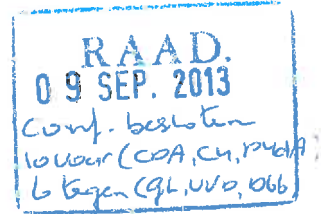 RAAD.
09 SEP. 2013
Conf. besloten
10 voor (CDA, CU, PvdA)
6 tegen (GL, VVD, D66)